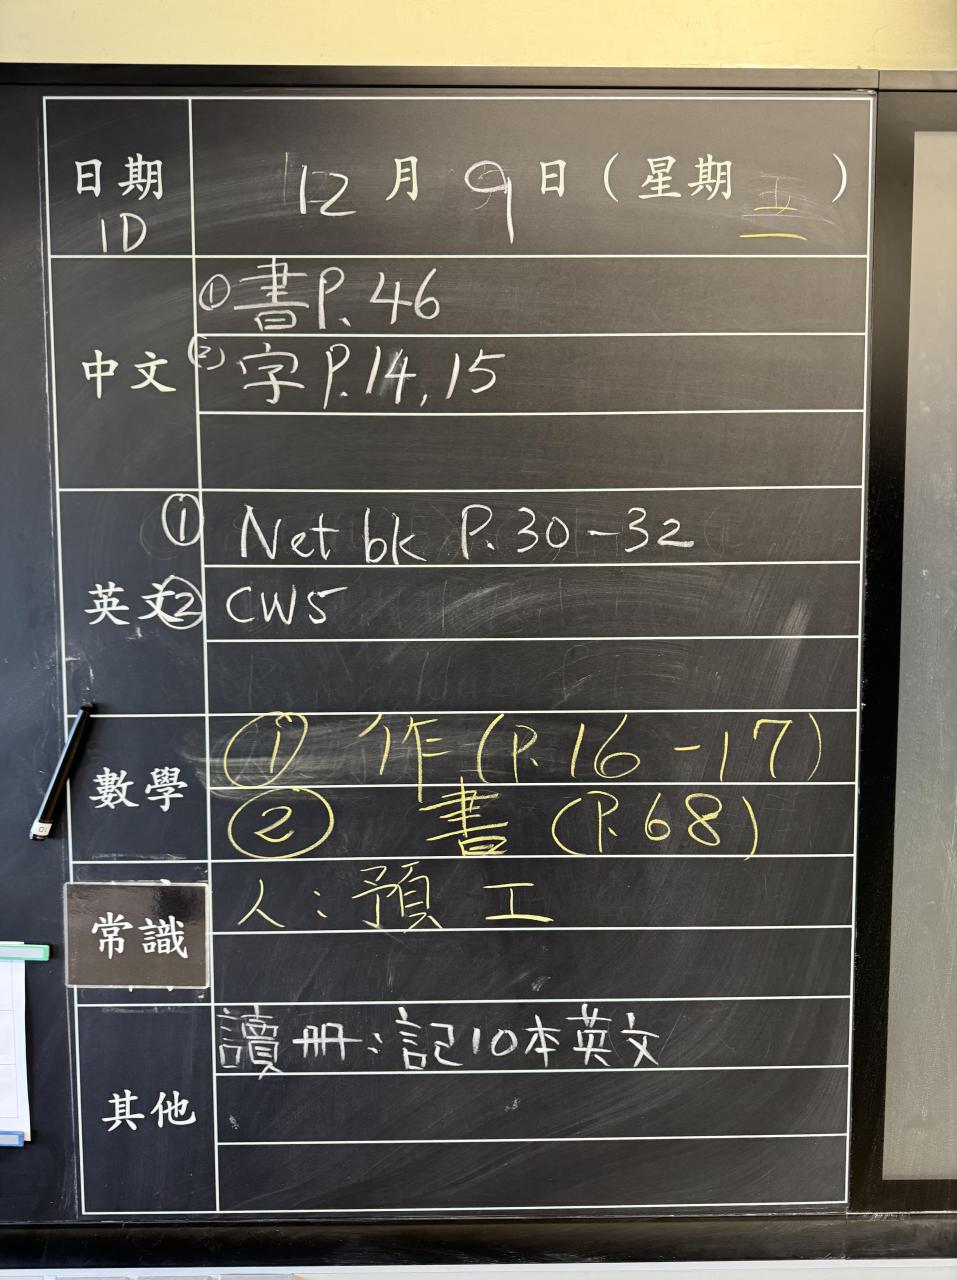 日期 12 月 9 日 ( 星期 )
1D
中文
① 書 P. 46
② 字 P. 14, 15
英文
① Net bk P. 30 - 32
② CW5
數學
① 作 (P. 16 - 17)
② 書 (P. 68)
常識
人：預 工
其他
讀冊：記10本英文